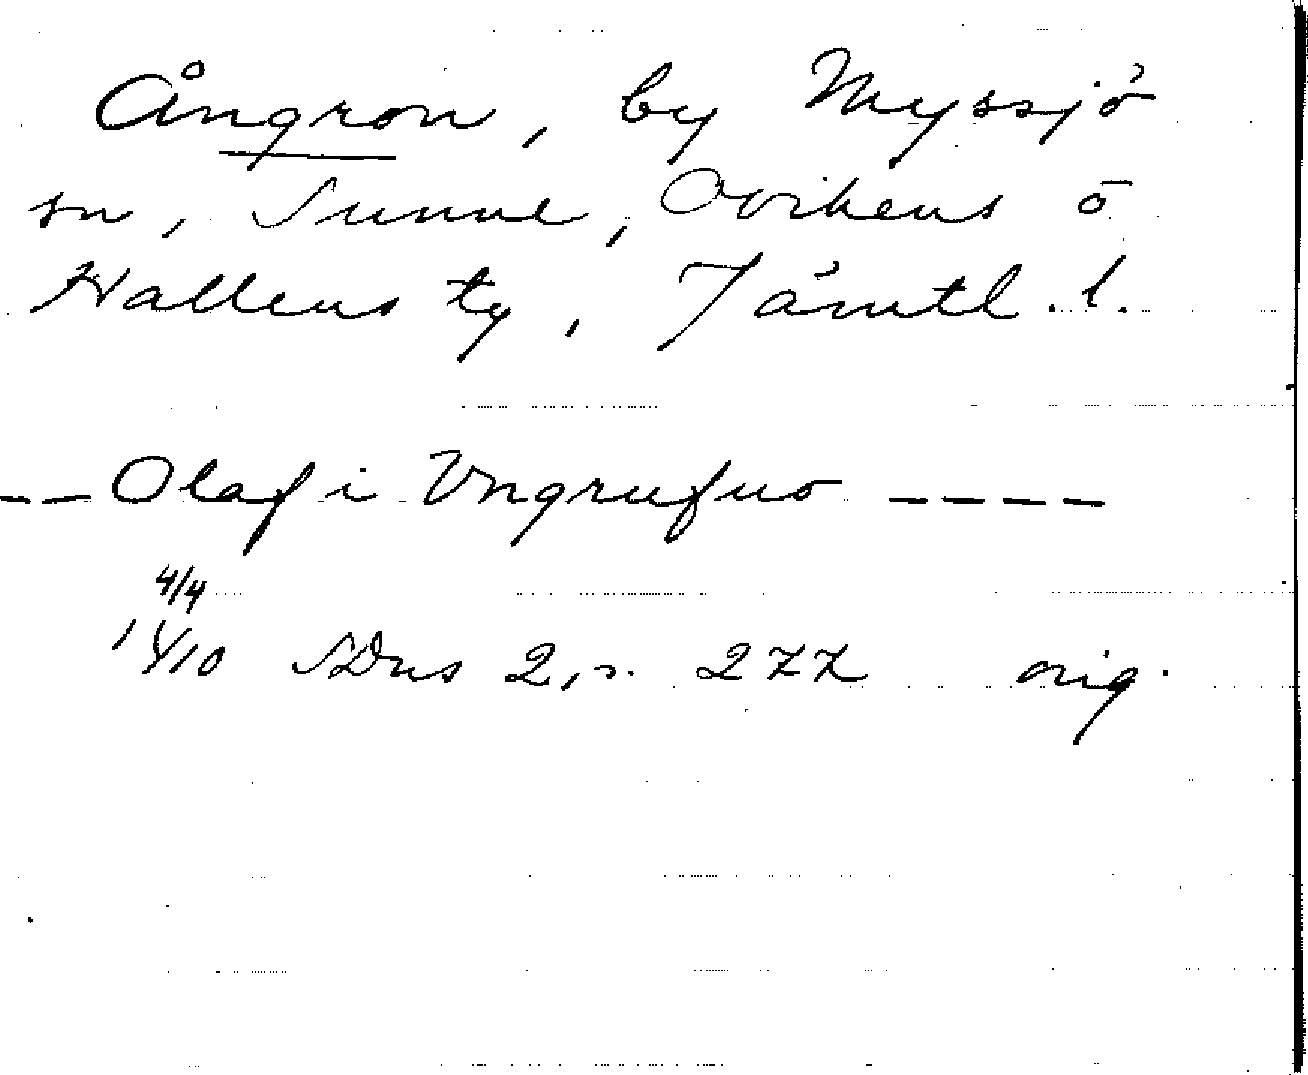 Ångron, by Myssjö
sn, Sunne, Ovikens o
Hallens tg, Jämtl. l.
-- Olaf i Vngrufuo ----
4/4
1410 SDns 2, s. 277 orig.